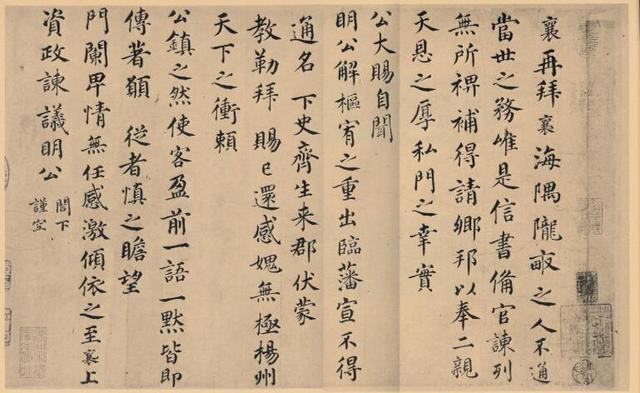 襄再拜襄海隅隴畝之人不通
當世之務唯是信書備官諫列
無所裨補得請鄉邦以奉二親
天恩之厚私門之幸實
公大賜自聞
明公解樞宥之重出臨藩宣不得
通名下史齊生来郡伏蒙
教勒拜賜已還感媿無極楊州
天下之衝賴
公鎮之然使客盈前一語一黙皆即
傳著願從者慎之瞻望
門闌卑情無任感激傾依之至襄上
資政諫議明公
閤下
謹空